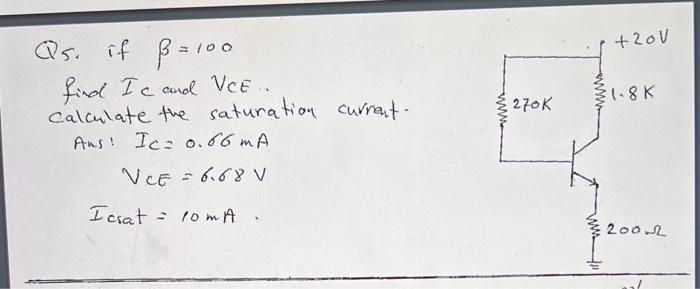 Q5. if β = 100
find Ic and VCE..
calculate the saturation current.
Ans: Ic = 0.66 mA
VCE = 6.68 V
Icsat = 10 mA.
+20V
1.8K
270K
200Ω